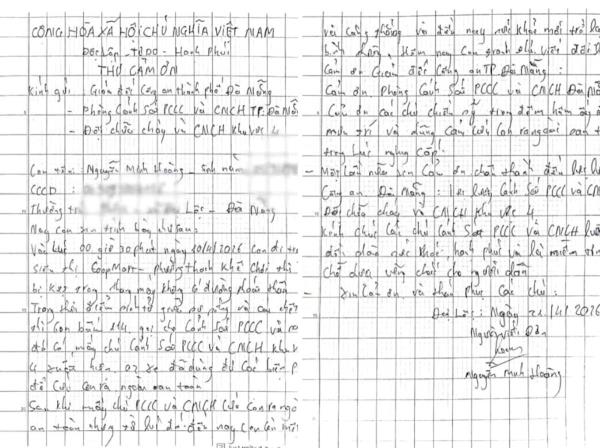 CỘNG HÒA XÃ HỘI CHỦ NGHĨA VIỆT NAM
Độc lập - Tự Do - Hạnh Phúc
THƯ CẢM ƠN
Kính gửi: Giám đốc công an thành phố Đà Nẵng
- Phòng Cảnh Sát PCCC và CNCH TP. Đà Nẵ
- Đội chữa cháy và CNCH khu vực 4
Con tên: Nguyễn Minh Hoàng - sinh năm
CCCD:
Thường tr Lộc - Đà Nẵng
Nay con xin trình bày như sau:
Vào lúc 00 giờ 30 phút ngày 20/4/2026 Con đi
siêu thị CoopMart - phường thanh khê
bị kẹt trong không có đường thoát thân
Trong thời điểm giữa sự sống và cái chết
thì con bấm 114 gọi cho Cảnh Sát PCCC và
mấy chú Cảnh Sát PCCC và CNCH khu v
4 xuất hiện, xe đã dùng đủ các biện p
để cứu con ra ngoài an toàn
Sau khi mấy chú PCCC và CNCH cứu con ra ngo
an toàn nhưng đến nay con
và căng thẳng và đến nay sức khỏe mới trở lại
bình thường, Hôm nay con viết
Cảm ơn Giám đốc Công an TP. Đà Nẵng:
Cảm ơn Phòng Cảnh Sát PCCC và CNCH Đà Nẵ
Cảm ơn các chú chiến sỹ trong đêm hôm ấy
mưu trí và dũng cảm cứu con ra ngoài an t
trong lúc nguy cấp!
- Một lần nữa xin cảm ơn chân thành đến lực l
Công an Đà Nẵng: lực lượng Cảnh Sát PCCC và CN
Đội chữa cháy và CNCH khu vực 4
kính chúc các chú Cảnh Sát PCCC và CNCH luô
dồi dào sức khỏe, hạnh phúc và là niềm tin
chỗ dựa vững chắc cho người dân
xin cảm ơn và các chú:
Đại Lộc: Ngày 21/4/2026
Người viết đơn
Nguyễn Minh Hoàng